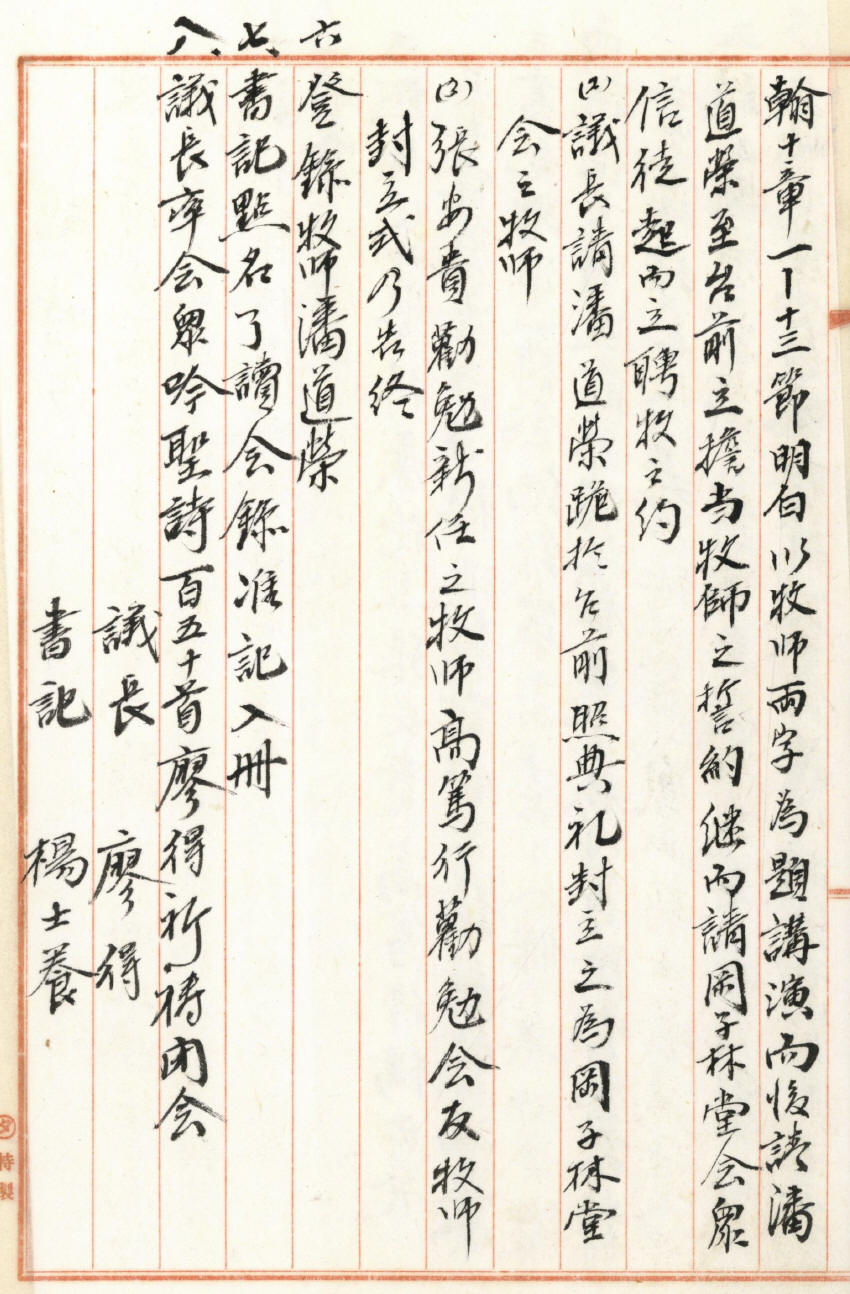 翰十章一｜十三節明白以牧师兩字為題講演而後請潘
道榮至台前立擔当牧師之誓約継而請岡子林堂会眾
信徒起而立聘牧之約
㈣議長請潘道榮跪於台前照典礼封立之為岡子林堂
会之牧师
㈣張安貴勸勉新任之牧师高篤行勸勉会友牧师
封立式乃告终
六 登錄牧师潘道榮
七、書記點名了讀会錄准記入冊
八、議長率会眾吟聖詩百五十首廖得祈祷闭会
議長 廖得
書記 楊士養
特製